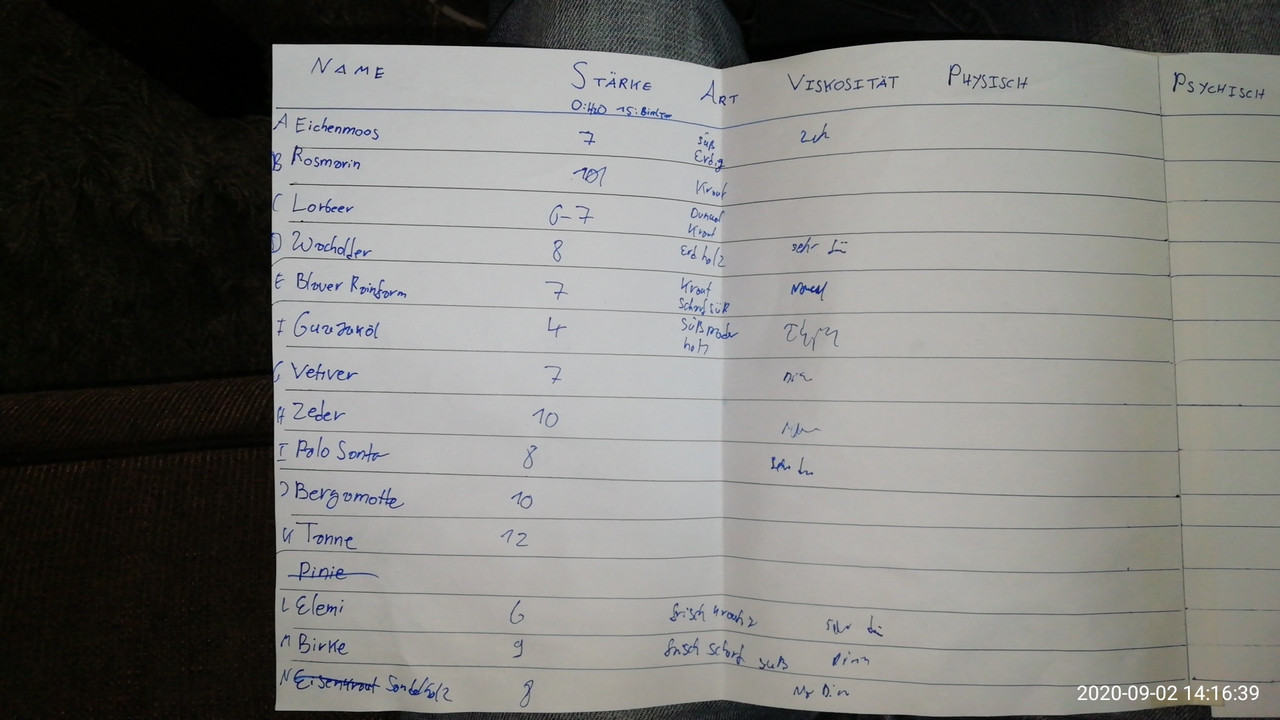 NAME STÄRKE ART VISKOSITÄT PHYSISCH PSYCHISCH
O:H2O 15:
A Eichenmoos 7 süß Erdig zäh
B Rosmarin 10 Kraut
C Lorbeer 6-7 Dunkel Kraut
D Wacholder 8 Erd holz sehr
E Blauer Rainfarn 7 Kraut Scharf süß
Guajaköl 4 Süß holz
G Vetiver 7
H Zeder 10
I Palo Santo 8
J Bergamotte 10
K Tanne 12
Pinie
L Elemi 6 frisch sehr
M Birke 9 frisch scharf süß Dünn
N Eisenkraut Sandelholz 8
2020-09-02 14:16:39